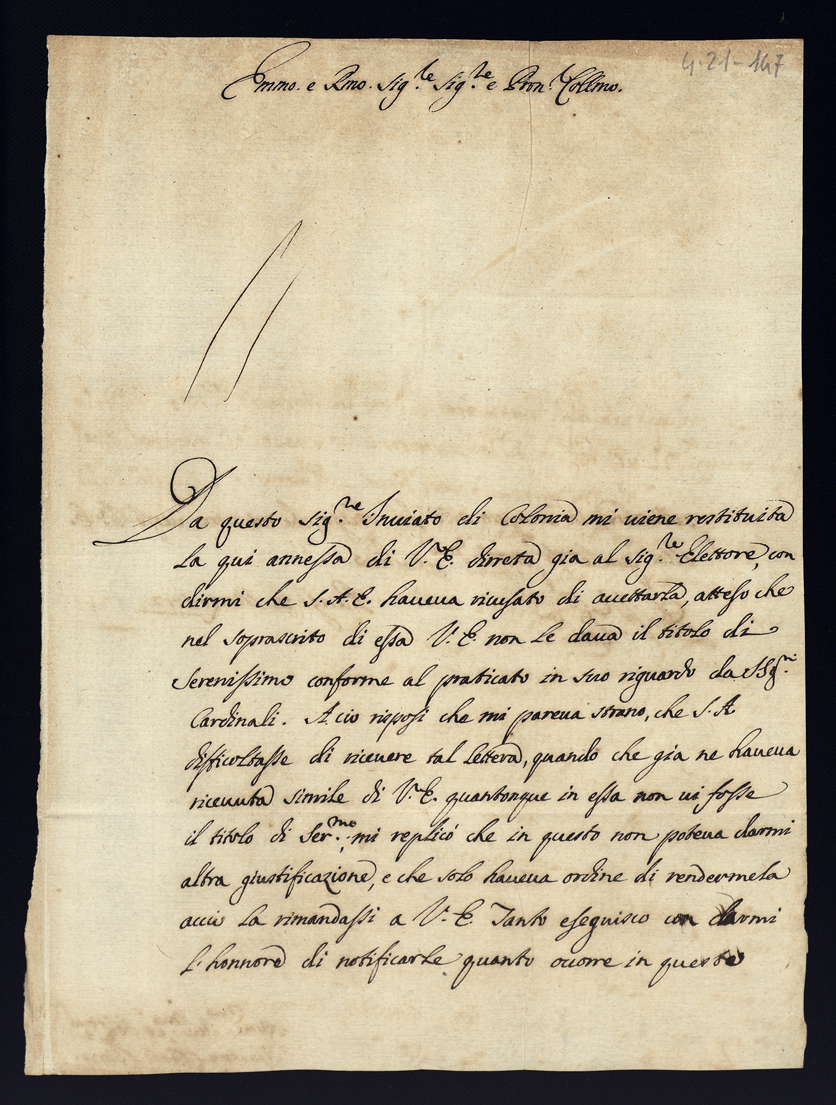 4.21-147
Emmo. e Rmo. Sig.re Sig.re e Pron. Collmo.
Da questo Sig.re Inuiato di Colonia mi uiene restituita
la qui annessa di V. E. diretta gia al Sig.re Elettore, con
dirmi che S. A. E. haueua ricusato di accettarla, atteso che
nel soprascrito di essa V. E. non le daua il titolo di
Serenissimo conforme al praticato in suo riguardo da SSig.ri
Cardinali. A cio risposi che mi pareua strano, che S. A
difficoltasse di riceuere tal lettera, quando che gia ne haueua
riceuuta simile di V. E. quantonque in essa non ui fosse
il titolo di Ser.mo; mi replicó che in questo non poteua darmi
altra giustificazione, e che solo haueua ordine di rendermela
accio la rimandassi a V. E. Tanto eseguisco con darmi
l'honnore di notificarle quanto ocorre in questo